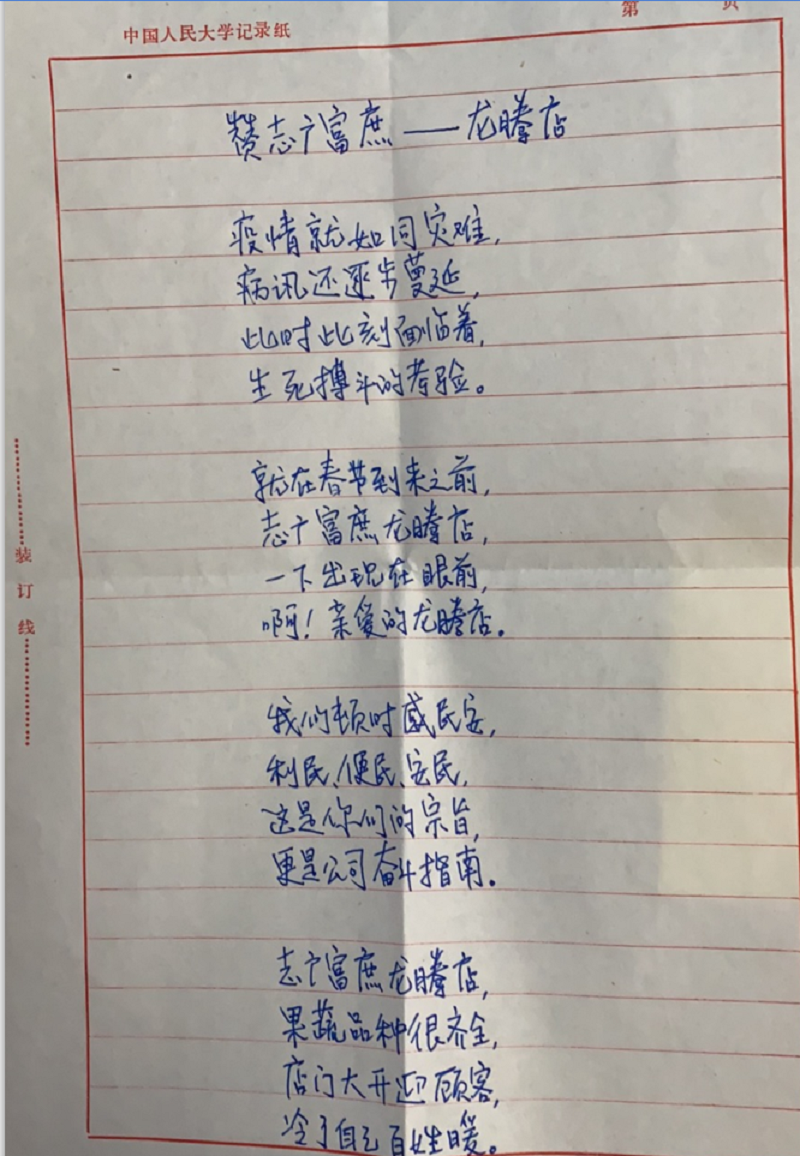 中国人民大学记录纸
第 页
赞志广富庶——龙腾店
疫情就如同灾难,
病讯还逐步蔓延,
此时此刻面临着,
生死搏斗的考验。
就在春节到来之前,
志广富庶龙腾店,
一下出现在眼前,
啊!亲爱的龙腾店。
我们顿时感民安,
利民、便民、安民,
这是你们的宗旨,
更是公司奋斗指南。
志广富庶龙腾店,
果蔬品种很齐全,
店门大开迎顾客,
冷了自己百姓暖。
装订线